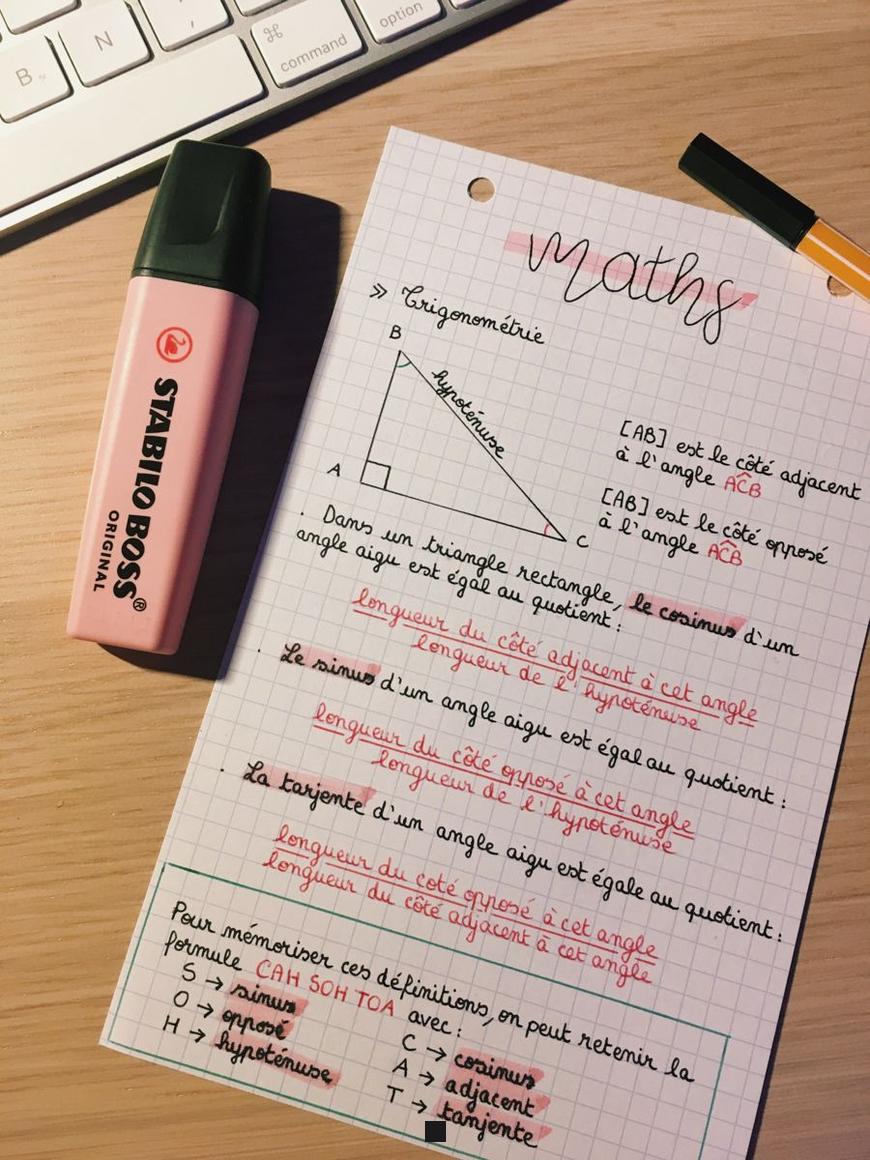 B
N
,
;
⌘
command
option
STABILO BOSS®
ORIGINAL
maths
>> Trigonométrie
B
hypoténuse
A
C
[AB] est le côté adjacent
à l'angle ACB
[AB] est le côté opposé
à l'angle ACB
. Dans un triangle rectangle, le cosinus d'un
angle aigu est égal au quotient :
longueur du côté adjacent à cet angle
longueur de l'hypoténuse
. Le sinus d'un angle aigu est égal au quotient :
longueur du côté opposé à cet angle
longueur de l'hypoténuse
. La tarjente d'un angle aigu est égale au quotient :
longueur du coté opposé à cet angle
longueur du côté adjacent à cet angle
Pour mémoriser ces définitions, on peut retenir la
formule CAH SOH TOA avec :
S → sinus
O → opposé
H → hypoténuse
C → cosinus
A → adjacent
T → tanjente